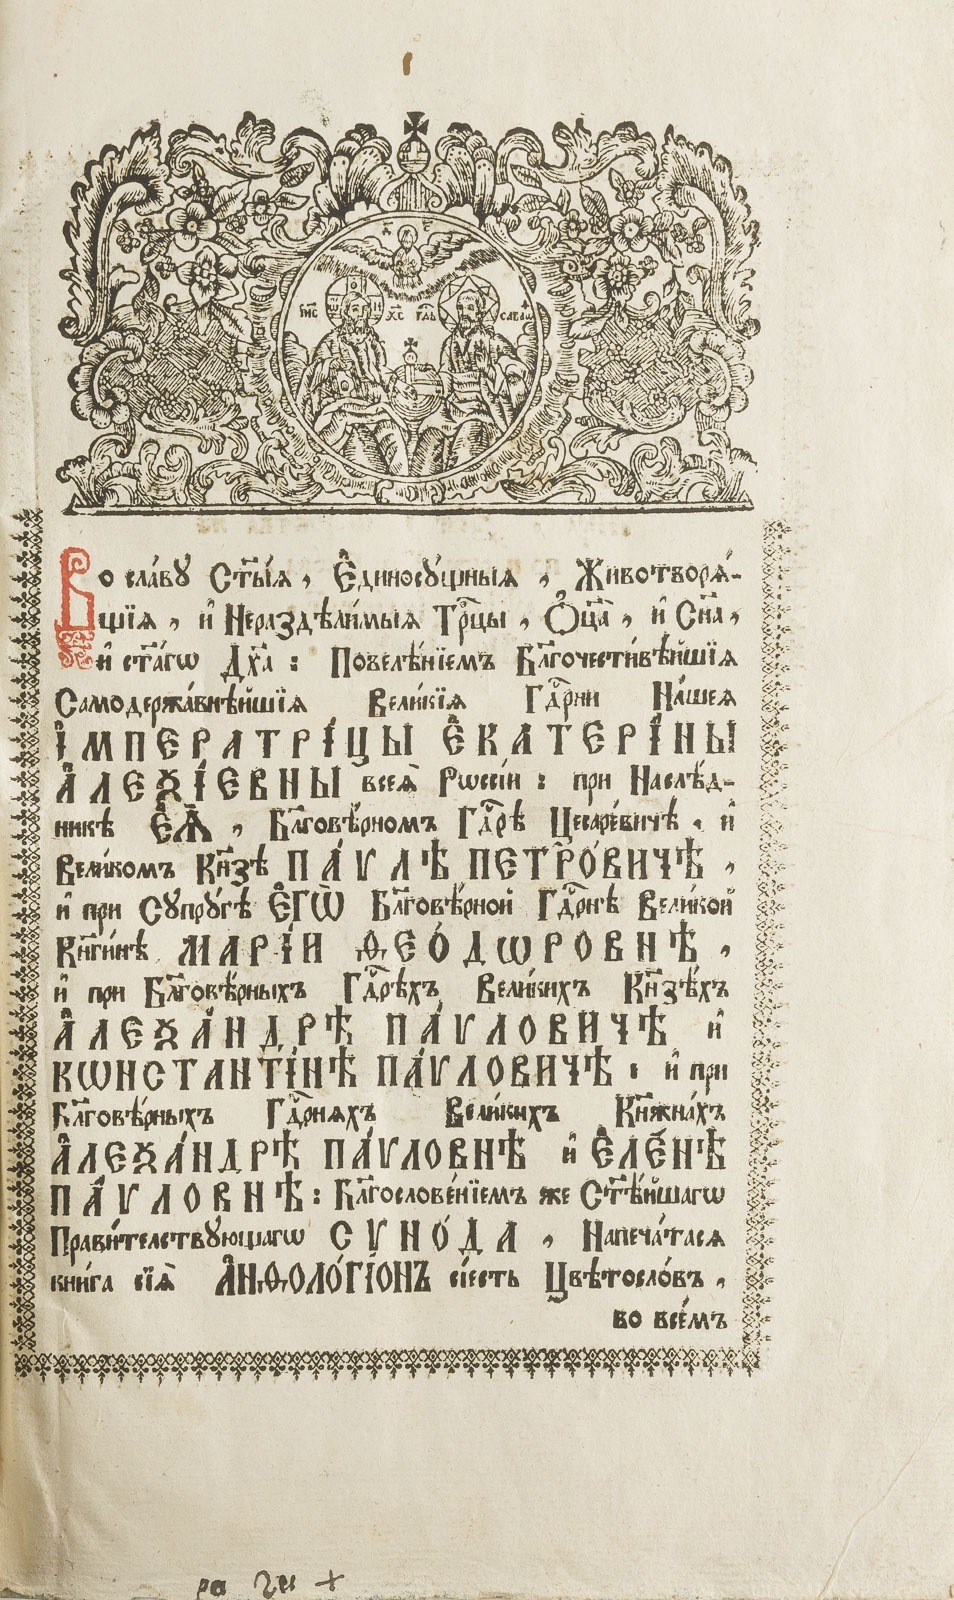 І҆ИС ХС ГДЬ САВАѠѲ
Во сла́ву Ст҃ы́ѧ , Е҆диносꙋ́щныѧ , Животворѧ́-
щїѧ , и҆ Нераздѣли́мыѧ Трⷪ҇цы , Ѻ҆ц҃а̀ , и҆ Сн҃а ,
и҆ ст҃а́гѡ Дх҃а : Повелѣ́нїемъ Бл҃гочести́вѣйшїѧ
Самодержа́внѣйшїѧ Вели́кїѧ Гдⷭ҇рни На́шеѧ
І҆МПЕРАТРІ́ЦЫ Е҆КАТЕРІ́НЫ
А҆ЛЕѮІ́ЕВНЫ всеѧ̀ Рѡссі́и : при Наслѣ́д-
никѣ Е҆Ѧ̀ , Бл҃говѣ́рномъ Гдⷭ҇рѣ Цесаре́вичѣ , и҆
Вели́комъ Кн҃зѣ ПА́ѴЛѢ ПЕТРО́ВИЧѢ ,
и҆ при Сꙋпрꙋ́гѣ Е҆ГѠ̀ Бл҃говѣ́рной Гдⷭ҇рнѣ Вели́кой
Кн҃ги́нѣ МАРІ́И Ѳ҆ЕО́ДѠРОВНѢ ,
и҆ при Бл҃говѣ́рныхъ Гдⷭ҇рѣхъ Вели́кихъ Кн҃зѣ́хъ
А҆ЛЕѮА́НДРѢ ПА́ѴЛОВИЧѢ и҆
КѠНСТАНТІ́НѢ ПА́ѴЛОВИЧѢ : и҆ при
Бл҃говѣ́рныхъ Гдⷭ҇рнѧхъ Вели́кихъ Кн҃жна́хъ
А҆ЛЕѮА́НДРѢ ПА́ѴЛОВНѢ и҆ Е҆ЛЕ́НѢ
ПА́ѴЛОВНѢ : Бл҃гослове́нїемъ же Ст҃ѣ́йшагѡ
Прави́телствꙋющагѡ СѴНО́ДА , Напеча́тасѧ
кни́га сїѧ̀ А҆НѲОЛО́ГІОНЪ сі́есть Цвѣтосло́въ ,
во все́мъ